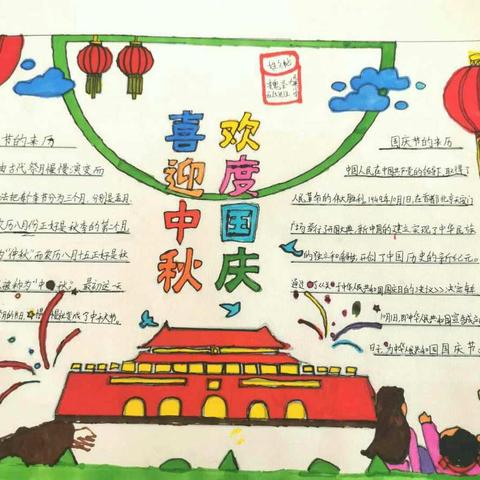 喜迎中秋
欢度国庆
节的来历
由古代祭月慢慢演变而
法把每个季节分为三个月,分别是孟月
农历八月份正好是秋季的第二个月
为“仲秋”而农历八月十五正好是秋
被称为“中秋”。最初这一
慢慢变成了中秋节。
国庆节的来历
中国人民在中国共产党的领导下,取得了
人民革命的伟大胜利,1949年10月1日,在首都北京天安门
广场举行开国大典,新中国的建立实现了中华民族
的独立和解放,开创了中国历史的新纪元。
通过了《关于中华人民共和国国庆日的决议》决定每年
10月1日,即中华人民共和国宣告成立
日子,为中华人民共和国国庆节